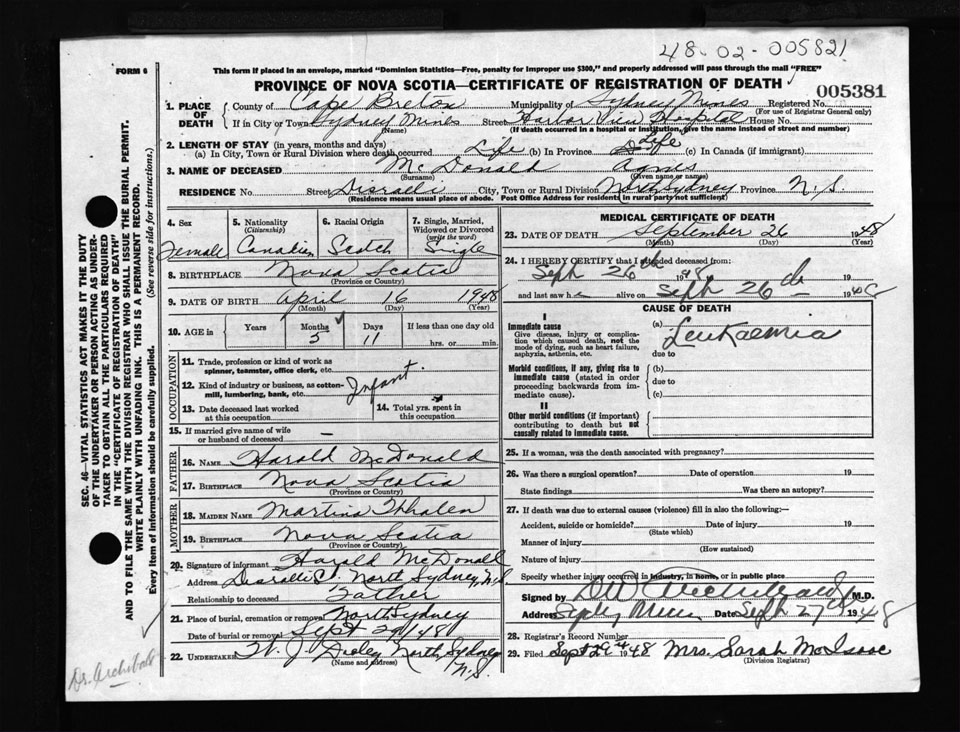 48-02-005821
FORM 6
This form if placed in an envelope, marked "Dominion Statistics—Free, penalty for improper use $300," and properly addressed will pass through the mail "FREE"
PROVINCE OF NOVA SCOTIA—CERTIFICATE OF REGISTRATION OF DEATH
005381
1. PLACE OF DEATH
County of Cape Breton Municipality of Sydney Mines Registered No.
(For use of Registrar General only)
If in City or Town Sydney Mines Street Harbor View Hospital House No.
(Name) (If death occurred in a hospital or institution, give the name instead of street and number)
2. LENGTH OF STAY (in years, months and days)
(a) In City, Town or Rural Division where death occurred Life (b) In Province Life (c) In Canada (if immigrant)
3. NAME OF DECEASED McDonald Agnis
(Surname) (Given name or names)
RESIDENCE No. Street Disraelli City, Town or Rural Division North Sydney Province N.S.
(Residence means usual place of abode. Post Office Address for residents in rural parts not sufficient)
4. Sex
Female
5. Nationality
(Citizenship)
Canadian
6. Racial Origin
Scotch
7. Single, Married, Widowed or Divorced
(write the word)
Single
8. BIRTHPLACE Nova Scotia
(Province or Country)
9. DATE OF BIRTH April 16 1948
(Month) (Day) (Year)
10. AGE in
Years
Months
5
Days
11
If less than one day old
hrs. or min.
OCCUPATION
11. Trade, profession or kind of work as
spinner, teamster, office clerk, etc.
12. Kind of industry or business, as cotton-
mill, lumbering, bank, etc.
Infant
13. Date deceased last worked
at this occupation
14. Total yrs. spent in
this occupation
15. If married give name of wife
or husband of deceased —
FATHER
16. NAME Harold McDonald
17. BIRTHPLACE Nova Scotia
(Province or Country)
MOTHER
18. MAIDEN NAME Martina
19. BIRTHPLACE Nova Scotia
(Province or Country)
20. Signature of informant Harold McDonald
Address North Sydney, N.S.
Relationship to deceased Father
21. Place of burial, cremation or removal North Sydney
Date of burial or removal Sept 29/48
22. UNDERTAKER North Sydney
(Name and address) N.S.
MEDICAL CERTIFICATE OF DEATH
23. DATE OF DEATH September 26 1948
(Month) (Day) (Year)
24. I HEREBY CERTIFY that I attended deceased from:
Seph 26th 1948 19
and last saw h alive on Seph 26th 1948
CAUSE OF DEATH
I
Immediate cause
Give disease, injury or complica-
tion which caused death, not the
mode of dying, such as heart failure,
asphyxia, asthenia, etc.
(a)
Leukaemia
due to
Morbid conditions, if any, giving rise to
immediate cause (stated in order
proceeding backwards from im-
mediate cause).
(b)
due to
(c)
II
Other morbid conditions (if important)
contributing to death but not
causally related to immediate cause.
25. If a woman, was the death associated with pregnancy?
26. Was there a surgical operation? Date of operation 19
State findings Was there an autopsy?
27. If death was due to external causes (violence) fill in also the following:—
Accident, suicide or homicide? Date of injury 19
(State which)
Manner of injury
(How sustained)
Nature of injury
Specify whether injury occurred in industry, in home, or in public place
Signed by M.D.
Address Date Seph 27th 1948
28. Registrar's Record Number
29. Filed Sept 29th 1948 Mrs. Sarah McIsaac
(Division Registrar)
SEC. 46—VITAL STATISTICS ACT MAKES IT THE DUTY
OF THE UNDERTAKER OR PERSON ACTING AS UNDER-
TAKER TO OBTAIN ALL THE PARTICULARS REQUIRED
IN THE "CERTIFICATE OF REGISTRATION OF DEATH"
AND TO FILE THE SAME WITH THE DIVISION REGISTRAR WHO SHALL ISSUE THE BURIAL PERMIT.
WRITE PLAINLY WITH UNFADING INK. THIS IS A PERMANENT RECORD.
Every item of information should be carefully supplied. (See reverse side for instructions.)
Dr. Archibald